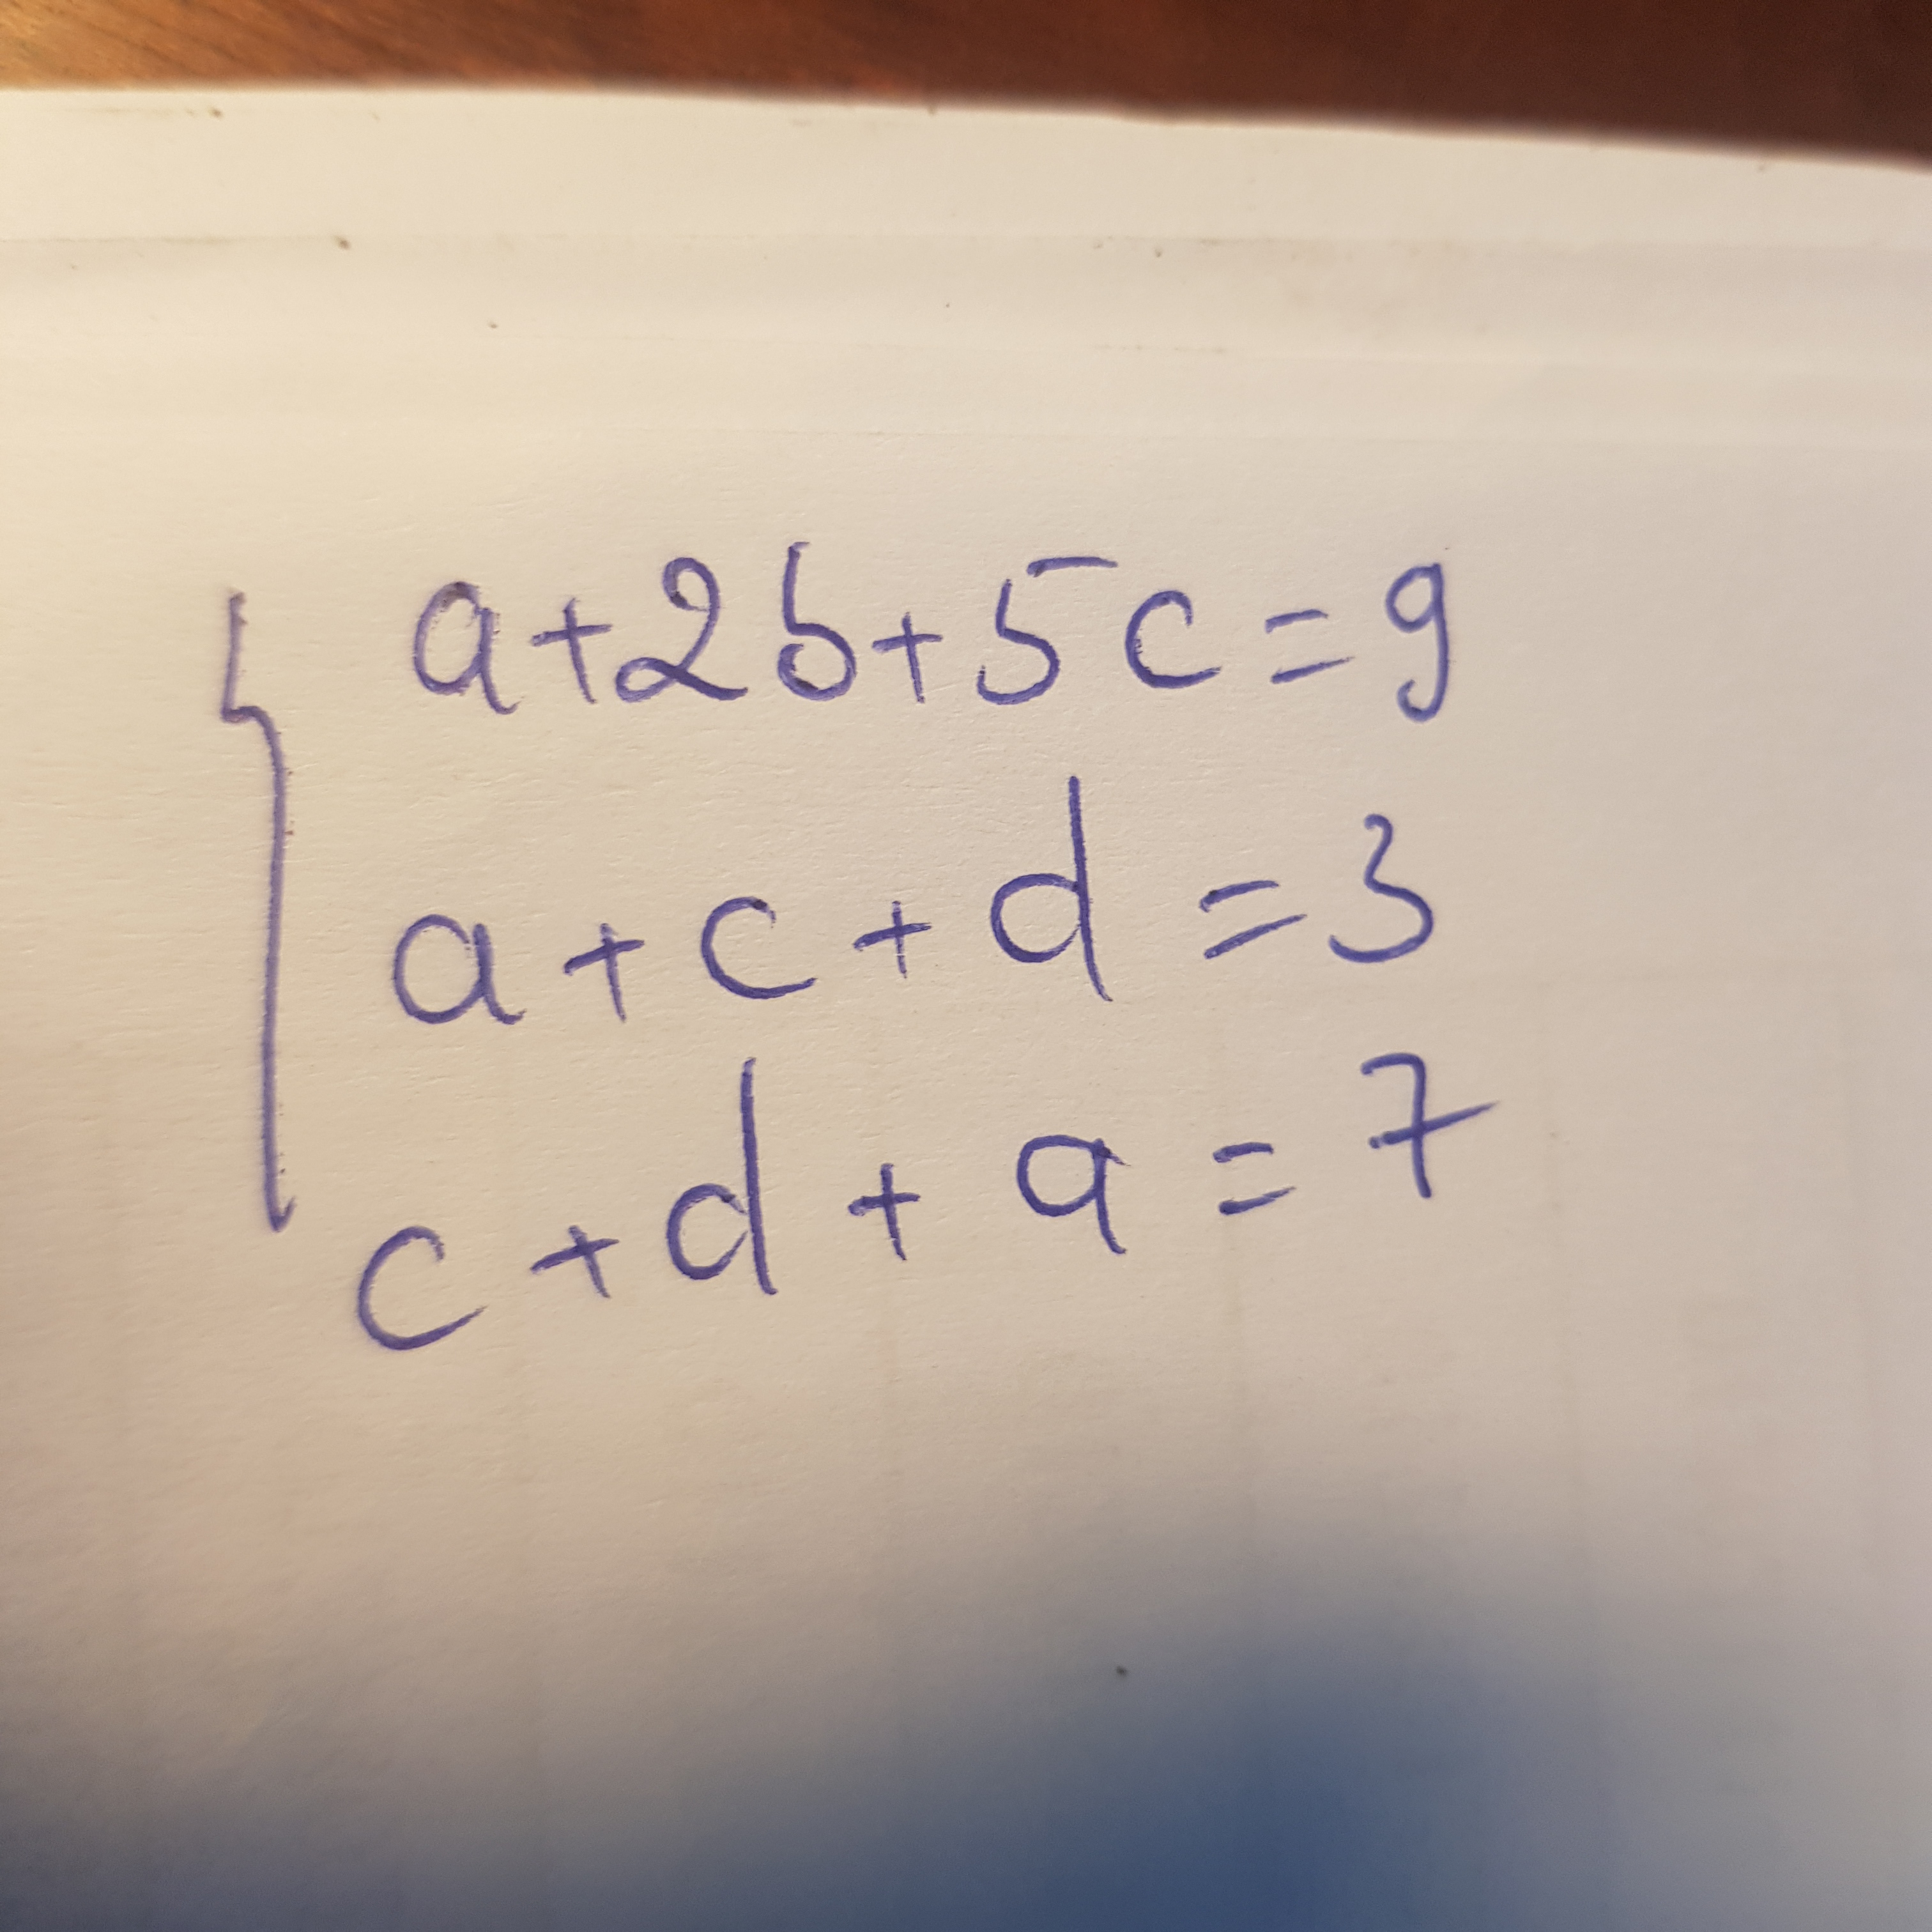 a+2b+5c=9
a+c+d=3
c+d+a=7